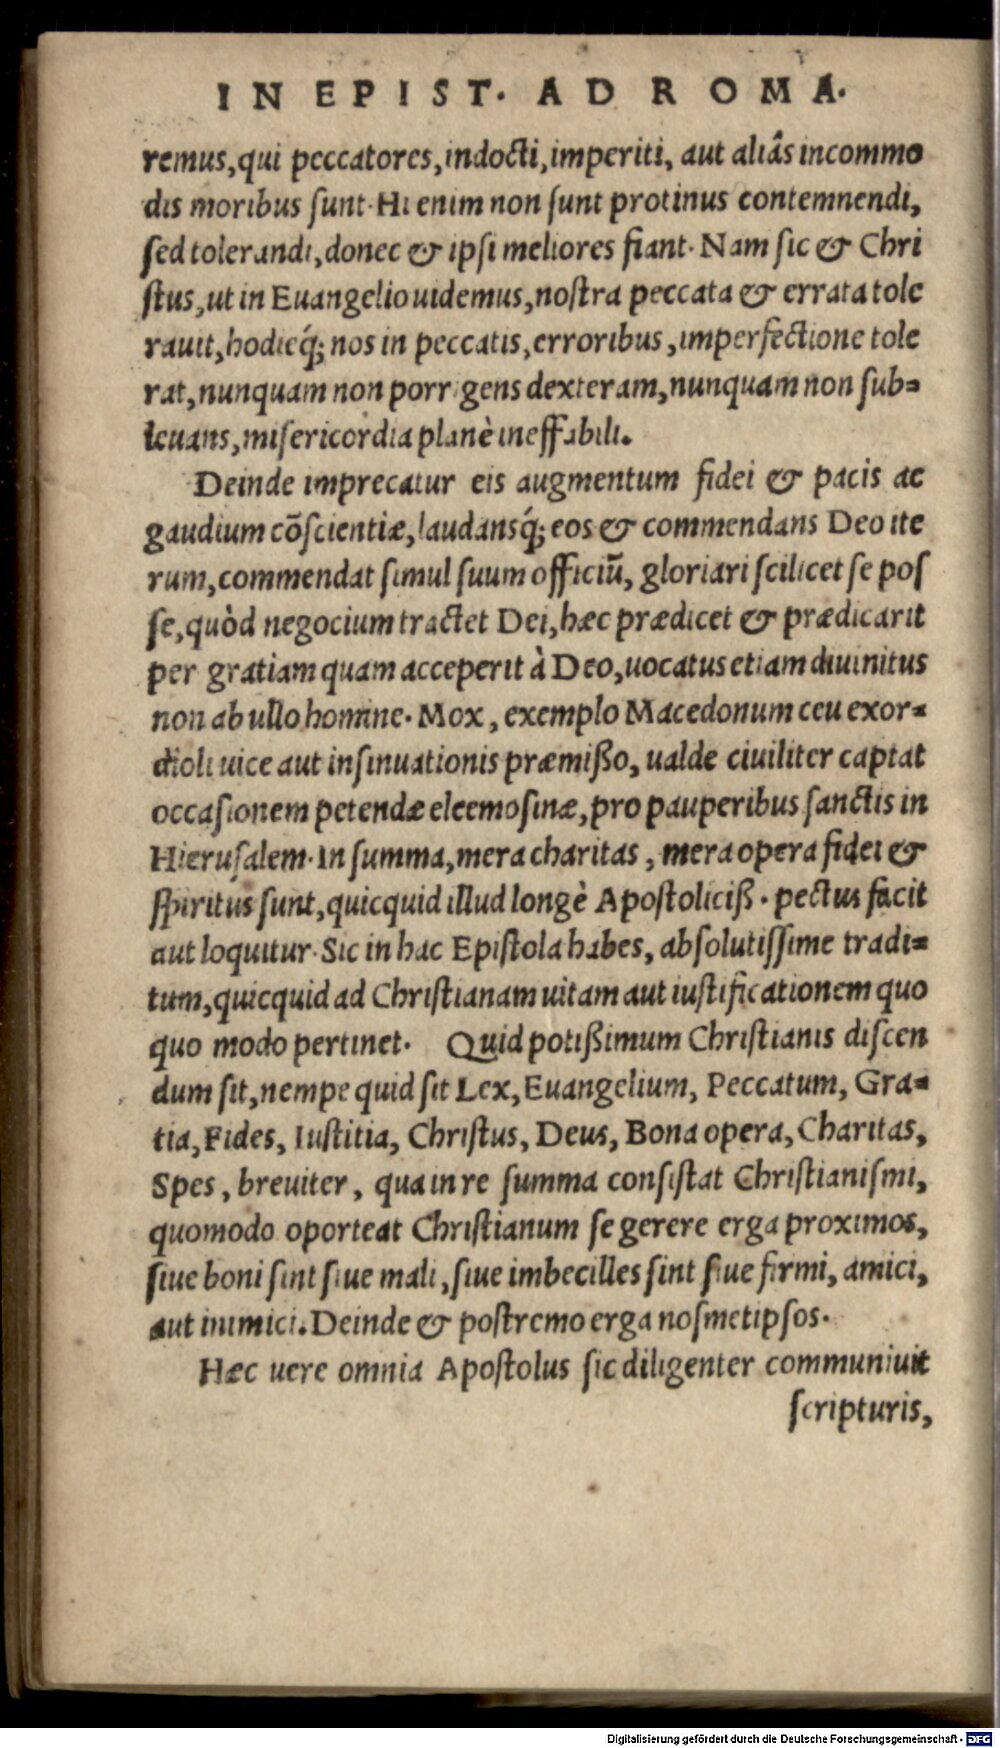 IN EPIST. AD ROMA.
remus, qui peccatores, indocti, imperiti, aut aliâs incommo
dis moribus sunt. Hi enim non sunt protinus contemnendi,
sed tolerandi, donec & ipsi meliores fiant. Nam sic & Chri
stus, ut in Euangelio uidemus, nostra peccata & errata tole
rauit, hodieq́; nos in peccatis, erroribus, imperfectione tole
rat, nunquam non porrigens dexteram, nunquam non sub-
leuans, misericordia planè ineffabili.
Deinde imprecatur eis augmentum fidei & pacis ac
gaudium cõscientiæ, laudansq́; eos & commendans Deo ite
rum, commendat simul suum officiũ, gloriari scilicet se pos
se, quòd negocium tractet Dei, hæc prædicet & prædicarit
per gratiam quam acceperit à Deo, uocatus etiam diuinitus
non ab ullo homine. Mox, exemplo Macedonum ceu exor-
dioli uice aut insinuationis præmißo, ualde ciuiliter captat
occasionem petendæ eleemosinæ, pro pauperibus sanctis in
Hierusalem. In summa, mera charitas, mera opera fidei &
spiritus sunt, quicquid illud longè Apostoliciß. pectus facit
aut loquitur. Sic in hac Epistola habes, absolutissime tradi-
tum, quicquid ad Christianam uitam aut iustificationem quo
quo modo pertinet. Quid potißimum Christianis discen
dum sit, nempe quid sit Lex, Euangelium, Peccatum, Gra-
tia, Fides, Iustitia, Christus, Deus, Bona opera, Charitas,
Spes, breuiter, qua in re summa consistat Christianismi,
quomodo oporteat Christianum se gerere erga proximos,
siue boni sint siue mali, siue imbecilles sint siue firmi, amici,
aut inimici. Deinde & postremo erga nosmetipsos.
Hæc uere omnia Apostolus sic diligenter communiuit
scripturis,
Digitalisierung gefördert durch die Deutsche Forschungsgemeinschaft - DFG